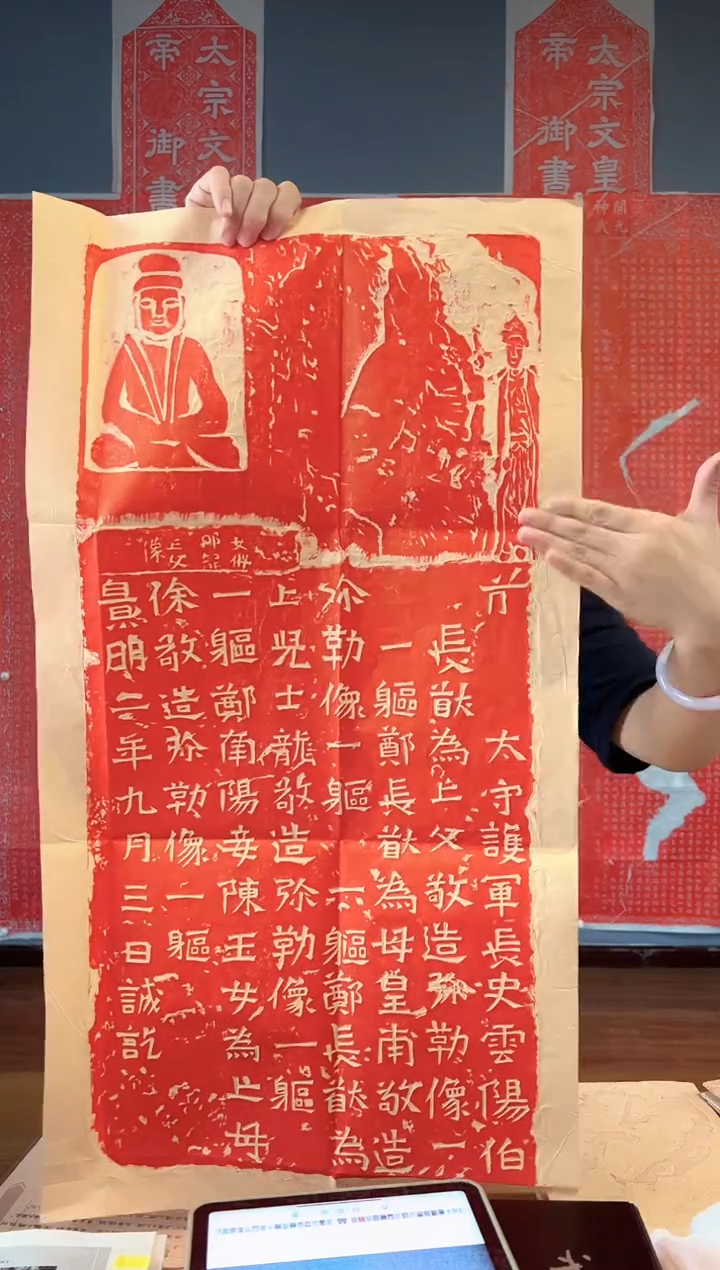 太宗文
帝御書
太宗文皇
帝御書
太守護軍長史雲陽伯
長猷為亡父敬造弥勒像一
一軀鄭長猷為母皇甫敬造
弥勒像一軀 軀鄭長猷為
亡児士龍敬造弥勒像一軀
一軀鄭南陽妾陳玉女為亡母
徐敬造弥勒像一軀
景明二年九月三日誠訖